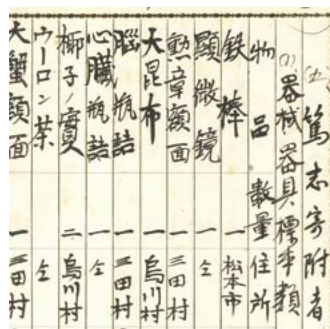 (五)篤志寄附者
(1)器械器具標本類
物品 数量 住所
鉄棒 一 松本市
顕微鏡 一 仝
勲章額面 一 三田村
大昆布 一 烏川村
脳瓶詰 一 三田村
心臓瓶詰 一 仝
椰子ノ実 二 烏川村
ウーロン茶 一 仝
大蟹額面 一 三田村